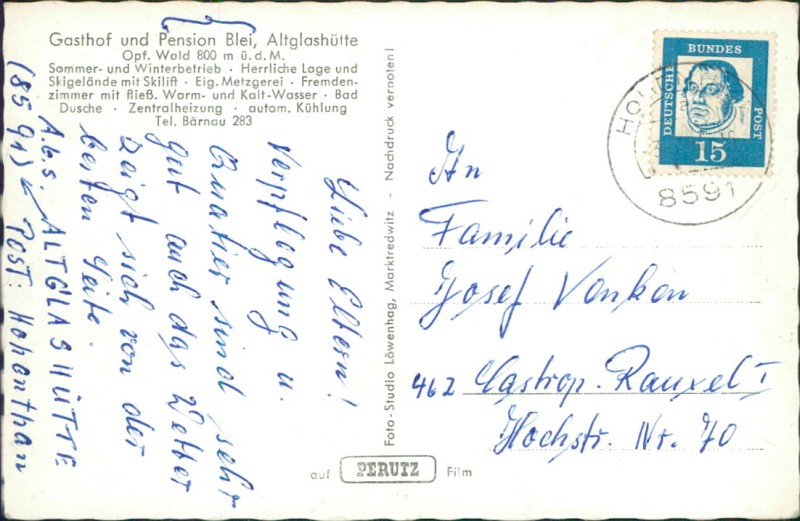 Gasthof und Pension Blei, Altglashütte
Opf. Wald 800 m ü. d. M.
Sommer- und Winterbetrieb · Herrliche Lage und
Skigelände mit Skilift · Eig. Metzgerei · Fremden-
zimmer mit fließ. Warm- und Kalt-Wasser · Bad
Dusche · Zentralheizung · autom. Kühlung
Tel. Bärnau 283
Liebe Eltern!
Verpflegung u.
Quatier sind sehr
gut auch das Wetter
zeigt sich von der
besten Seite.
Abs. ALTGLASHÜTTE
(8591) Post: Hohenthan
Foto-Studio Löwenhag, Marktredwitz - Nachdruck verboten!
auf PERUTZ Film
DEUTSCHE
BUNDES
POST
15
8591
An
Familie
Josef Vonkon
462 Castrop-Rauxel I
Hochstr. Nr. 70